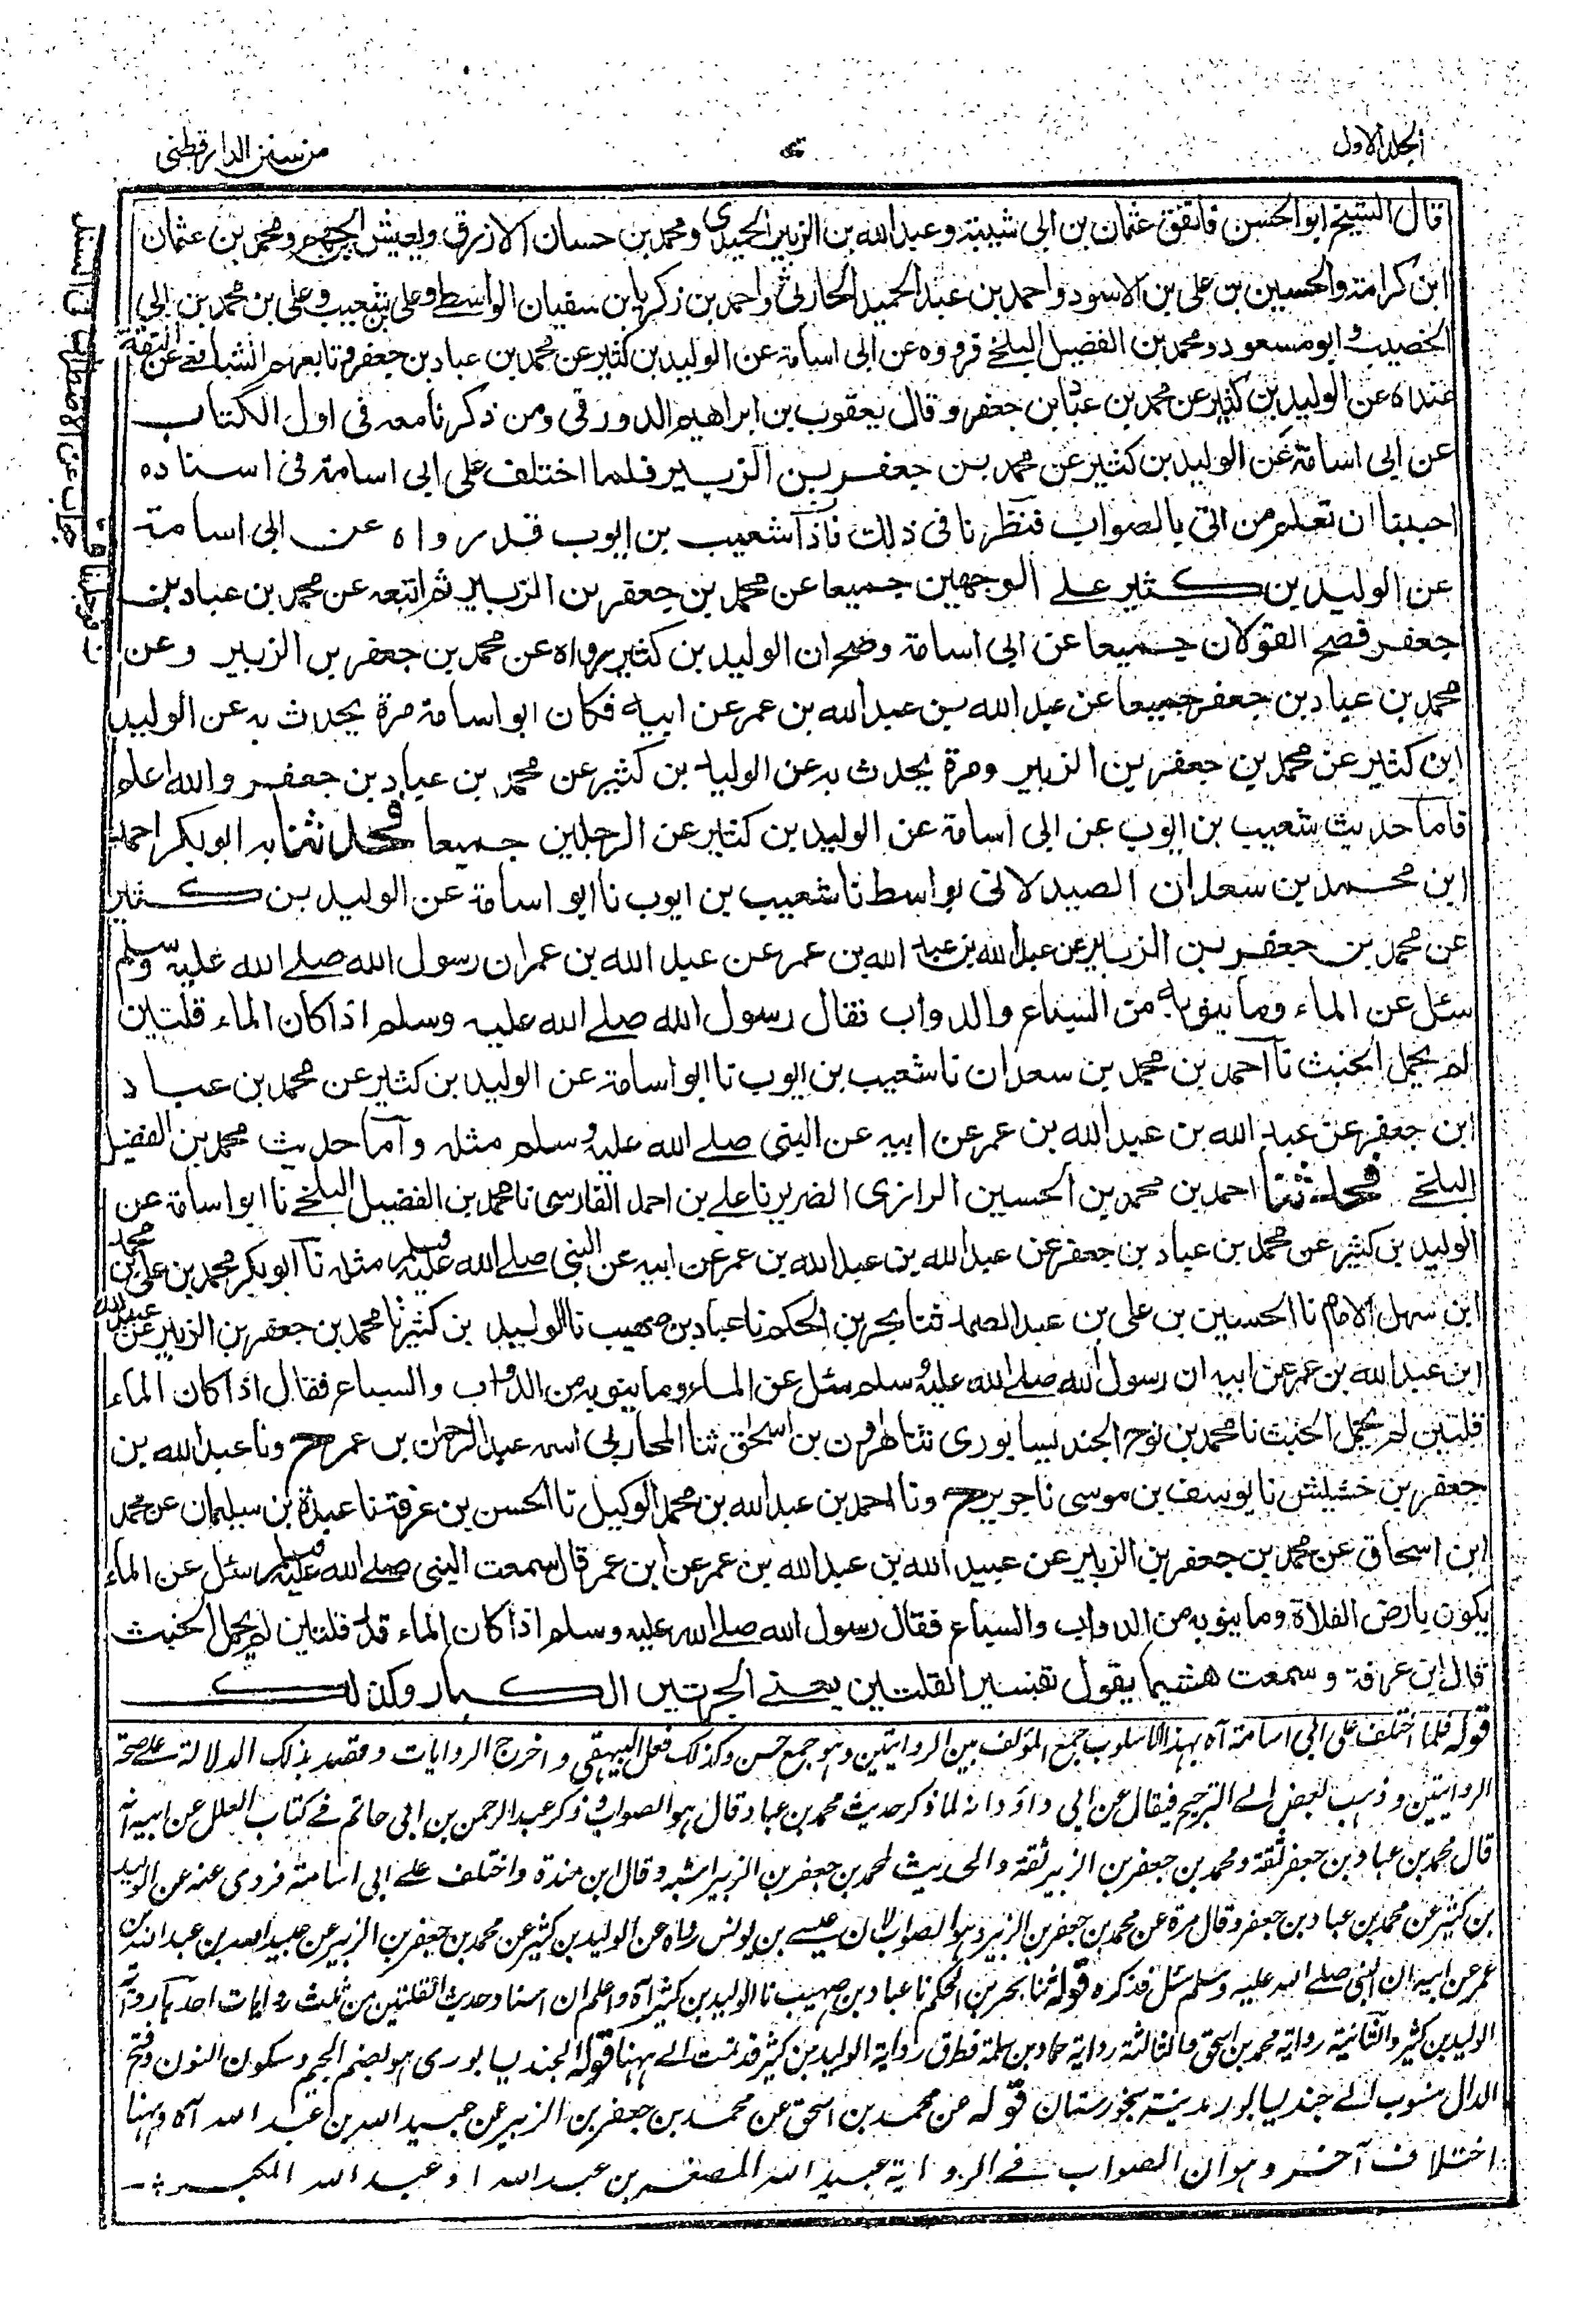 الجلد الاول
من سنن الدارقطني
قال الشيخ ابوالحسن فاتفق عثمان بن ابي شيبة وعبدالله بن الزبير الحميدى ومحمد بن حسان الازرق ويعيش بن الجهم ومحمد بن عثمان
ابن كرامة والحسين بن علي بن الاسود واحمد بن عبدالحميد الحارثى واحمد بن زكريا بن سفيان الواسطے وعلي بن شعيب وعلى بن محمد بن ابي
الخصيب وابو مسعود ومحمد بن الفضيل البلخے فرووه عن ابى اسامة عن الوليد بن كثير عن محمد بن عباد بن جعفر وتابعهم الشافعے عن الثقة
عنده عن الوليد بن كثير عن محمد بن عباد بن جعفر وقال يعقوب بن ابراهيم الدورقى ومن ذكرنا معه فى اول الكتاب
عن ابي اسامة عن الوليد بن كثير عن محمد بن جعفر بن الزبير فلما اختلف على ابى اسامة فى اسناده
احببنا ان نعلم من اتى بالصواب فنظرنا فى ذلك فاذا شعيب بن ايوب قد رواه عن ابى اسامة
عن الوليد بن كثير علے الوجهين جميعا عن محمد بن جعفر بن الزبير ثم اتبعه عن محمد بن عباد بن
جعفر فصح القولان جميعا عن ابي اسامة وصح ان الوليد بن كثير رواه عن محمد بن جعفر بن الزبير وعن
محمد بن عباد بن جعفر جميعا عن عبدالله بن عبدالله بن عمر عن ابيه فكان ابو اسامة مرة يحدث به عن الوليد
ابن كثير عن محمد بن جعفر بن الزبير ومرة يحدث به عن الوليد بن كثير عن محمد بن عباد بن جعفر والله اعلم
فاما حديث شعيب بن ايوب عن ابى اسامة عن الوليد بن كثير عن الرجلين جميعا فحدثنا به ابوبكر احمد
ابن محمد بن سعدان الصيدلانى بواسط نا شعيب بن ايوب نا ابو اسامة عن الوليد بن كثير
عن محمد بن جعفر بن الزبير عن عبدالله بن عبد الله بن عمر عن عبد الله بن عمر ان رسول الله صلے الله عليه وسلم
سئل عن الماء وما ينوبه من السباع والدواب فقال رسول الله صلے الله عليه وسلم اذا كان الماء قلتين
لم يحمل الخبث نا احمد بن محمد بن سعدان نا شعيب بن ايوب نا ابو اسامة عن الوليد بن كثير عن محمد بن عباد
ابن جعفر عن عبد الله بن عبدالله بن عمر عن ابيه عن النبى صلے الله عليه وسلم مثله واما حديث محمد بن الفضيل
البلخے فحدثنا احمد بن محمد بن الحسين الرازى الضرير نا علے بن احمد الفارسى نا محمد بن الفضيل البلخے نا ابو اسامة عن
الوليد بن كثير عن محمد بن عباد بن جعفر عن عبدالله بن عبدالله بن عمر عن ابيه عن النبى صلے الله عليه وسلم مثله نا ابوبكر محمد بن على بن محمد
ابن سهل الامام نا الحسين بن على بن عبد الصمد ثنا بحر بن الحكم نا عباد بن صهيب نا الوليد بن كثير نا محمد بن جعفر بن الزبير عن عبيدالله
ابن عبدالله بن عمر عن ابيه ان رسول الله صلے الله عليه وسلم سئل عن الماء وما ينوبه من الدواب والسباع فقال اذا كان الماء
قلتين لم يحمل الخبث نا محمد بن نوح الجنديسابورى نا هارون بن اسحٰق ثنا المحاربى اسمه عبدالرحمن بن محمد ح ونا عبدالله بن
جعفر بن خشيش نا يوسف بن موسى نا جرير ح ونا احمد بن عبدالله بن محمد الوكيل نا الحسن بن عرفة نا عبدة بن سليمان عن محمد
ابن اسحاق عن محمد بن جعفر بن الزبير عن عبيد الله بن عبدالله بن عمر عن ابن عمر قال سمعت النبى صلے الله عليه وسلم سئل عن الماء
يكون بارض الفلاة وما ينوبه من الدواب والسباع فقال رسول الله صلے الله عليه وسلم اذا كان الماء قدر قلتين لم يحمل الخبث
قال ابن عرفة وسمعت هشيما يقول تفسير القلتين يعنے الجرتين الكبار وكذلك
قوله فلما اختلف على ابى اسامة آه بهذا الاسلوب جمع المؤلف بين الروايتين وهو جمع حسن وكذلك فعل البيهقي واخرج الروايات وقصد بذلك الدلالة علے صحة
الروايتين وذهب بعض الے الترجيح فيقال عن ابى داؤد انه لما ذكر حديث محمد بن عباد قال هو الصواب وذكر عبدالرحمن بن ابى حاتم فے كتاب العلل عن ابيه انه
قال محمد بن عباد بن جعفر ثقة ومحمد بن جعفر بن الزبير ثقة والحديث لمحمد بن جعفر بن الزبير اشبه وقال ابن مندة واختلف علے ابى اسامة فروى عنه عن الوليد
بن كثير عن محمد بن عباد بن جعفر وقال مرة عن محمد بن جعفر بن الزبير وهو الصواب لان عيسے بن يونس رواه عن الوليد بن كثير عن محمد بن جعفر بن الزبير عن عبيدالله بن عبدالله بن
عمر عن ابيه ان النبى صلے الله عليه وسلم سئل فذكره قوله ثنا بحر بن الحكم نا عباد بن صهيب نا الوليد بن كثير آه واعلم ان اسناد حديث القلتين من ثلث روايات احدها رواية
الوليد بن كثير والثانية رواية محمد بن اسحق والثالثة رواية حماد بن سلمة فطرق رواية الوليد بن كثير قد تمت الے ههنا قوله الجنديسابورى هو بضم الجيم وسكون النون وفتح
الدال منسوب الے جنديسابور مدينة بخورستان قوله عن محمد بن اسحق عن محمد بن جعفر بن الزبير عن عبيدالله بن عبدالله آه وههنا
اختلاف آخر وهو ان الصواب فے الرواية عبيدالله المصغر بن عبدالله او عبدالله المكبر